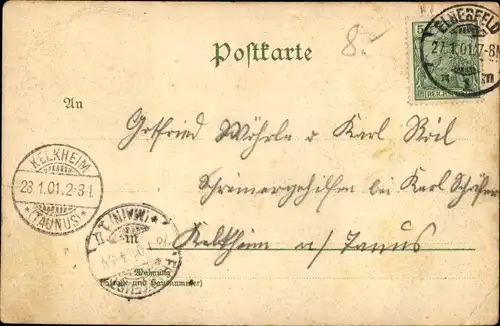 Postkarte
8.-
ELBERFELD
27.1.01.7-8N
5
REICHSPOST
An
Gottfried Wöhrle u Karl Roil
Schreinergehilfen bei Karl Schäfer
in Kelkheim a/ Taunus
KELKHEIM
28.1.01.2-3.
(TAUNUS)
(MAIN)
Wohnung
(Straße und Hausnummer)